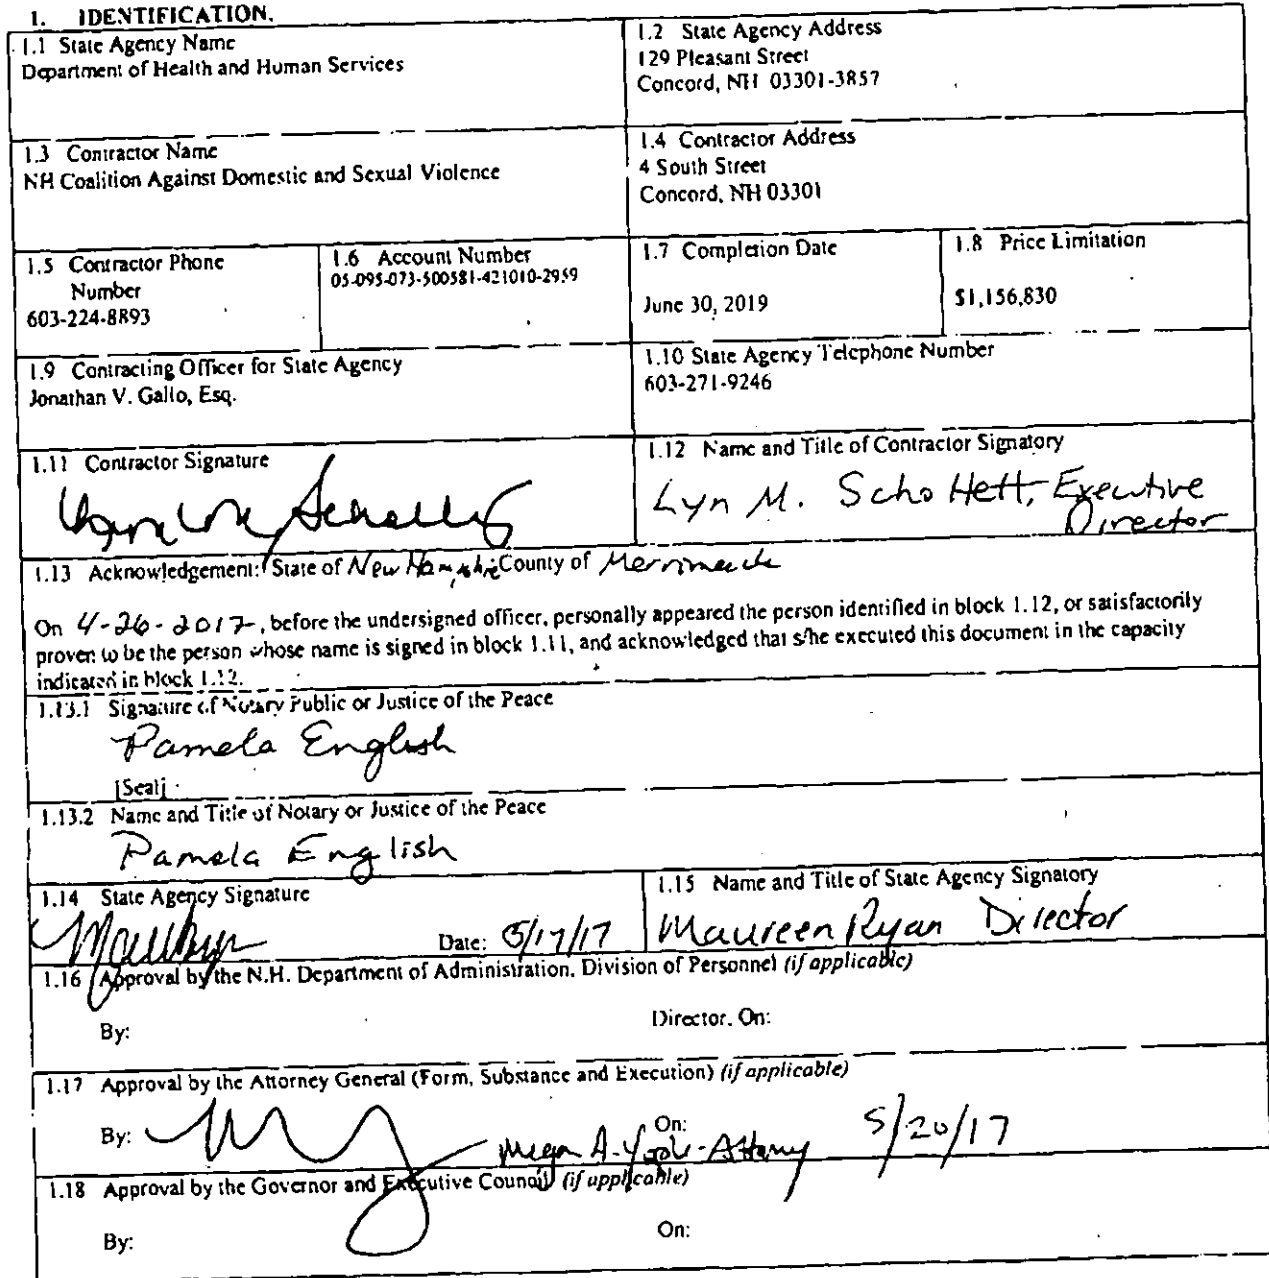 1. IDENTIFICATION.
1.1 State Agency Name
Department of Health and Human Services
1.2 State Agency Address
129 Pleasant Street
Concord, NH 03301-3857
1.3 Contractor Name
NH Coalition Against Domestic and Sexual Violence
1.4 Contractor Address
4 South Street
Concord, NH 03301
1.5 Contractor Phone
Number
603-224-8893
1.6 Account Number
05-095-073-500581-421010-2959
1.7 Completion Date
June 30, 2019
1.8 Price Limitation
$1,156,830
1.9 Contracting Officer for State Agency
Jonathan V. Gallo, Esq.
1.10 State Agency Telephone Number
603-271-9246
1.11 Contractor Signature
1.12 Name and Title of Contractor Signatory
Lyn M. Schollett, Executive
Director
1.13 Acknowledgement: State of New Hampshire County of Merrimack
On 4-26-2017, before the undersigned officer, personally appeared the person identified in block 1.12, or satisfactorily
proven to be the person whose name is signed in block 1.11, and acknowledged that s/he executed this document in the capacity
indicated in block 1.12.
1.13.1 Signature of Notary Public or Justice of the Peace
Pamela English
[Seal]
1.13.2 Name and Title of Notary or Justice of the Peace
Pamela English
1.14 State Agency Signature
Date: 5/17/17
1.15 Name and Title of State Agency Signatory
Maureen Ryan Director
1.16 Approval by the N.H. Department of Administration, Division of Personnel (if applicable)
By: Director, On:
1.17 Approval by the Attorney General (Form, Substance and Execution) (if applicable)
By: On:
Megan A. Yaple - Attorney 5/20/17
1.18 Approval by the Governor and Executive Council (if applicable)
By: On: